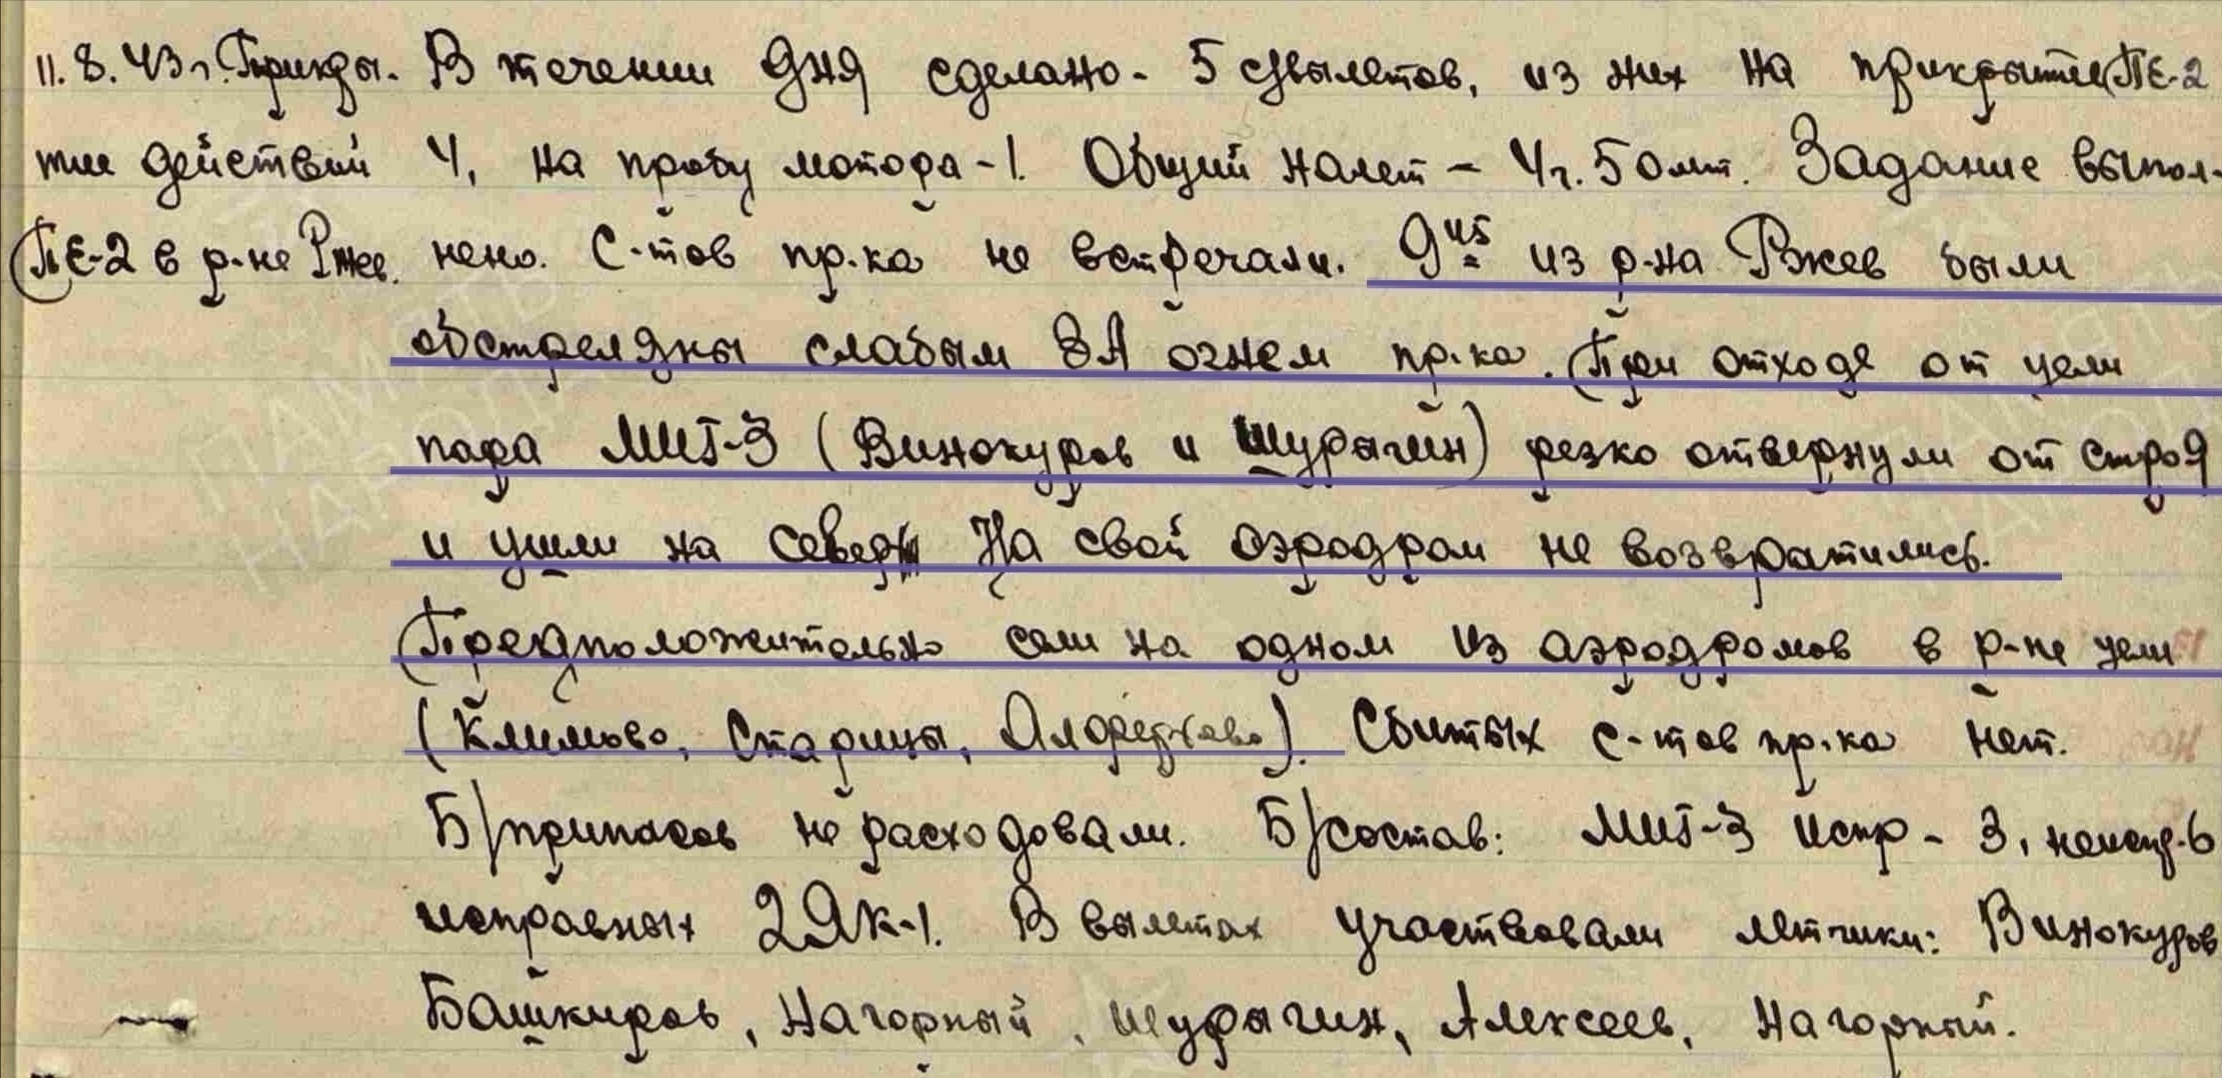 11.8.43 г. Прикры- В течении дня сделано - 5 с/вылетов, из них на прикрытие ПЕ-2
тие действий 4, на пробу мотора - 1. Общий налет - 4 ч. 50 мт. Задание выпол-
ПЕ-2 в р-не Ржев. нено. С-тов пр-ка не встречали. из р-на Ржев были
обстреляны слабым ЗА огнем пр-ка. При отходе от цели
пара МИГ-3 (Винокуров и Шурыгин) резко отвернули от строя
и ушли на север На свой аэродром не возвратились.
Предположительно сели на одном из аэродромов в р-не цели
(Климово, Старицы, ). Сбитых с-тов пр-ка нет.
Б/припасов не расходовали. Б/состав: МИГ-3 испр - 3, неиспр-6
исправных 2 ЯК-1. В вылетах участвовали летчики: Винокуров
Башкиров, Нагорный, Шурыгин, Алексеев, Нагорный.